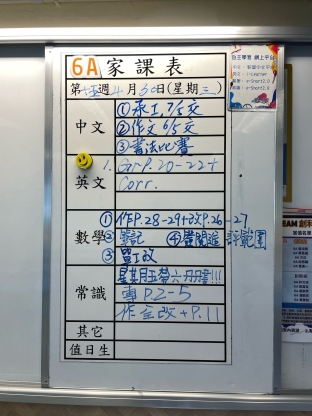 6A 家課表
第十五週4月30日(星期三)
中文 ①承工,7/5交
②作文 6/5交
③書法比賽
英文 1. Gr P.20-22+
Corr.
數學 ①作P.28-29+改P.26-27
②筆記 ④
③單1改
常識 星其月五帶六丹丹書!!!
P.2-5
作 改+P.11
其它
值日生
自主學習 網上平台